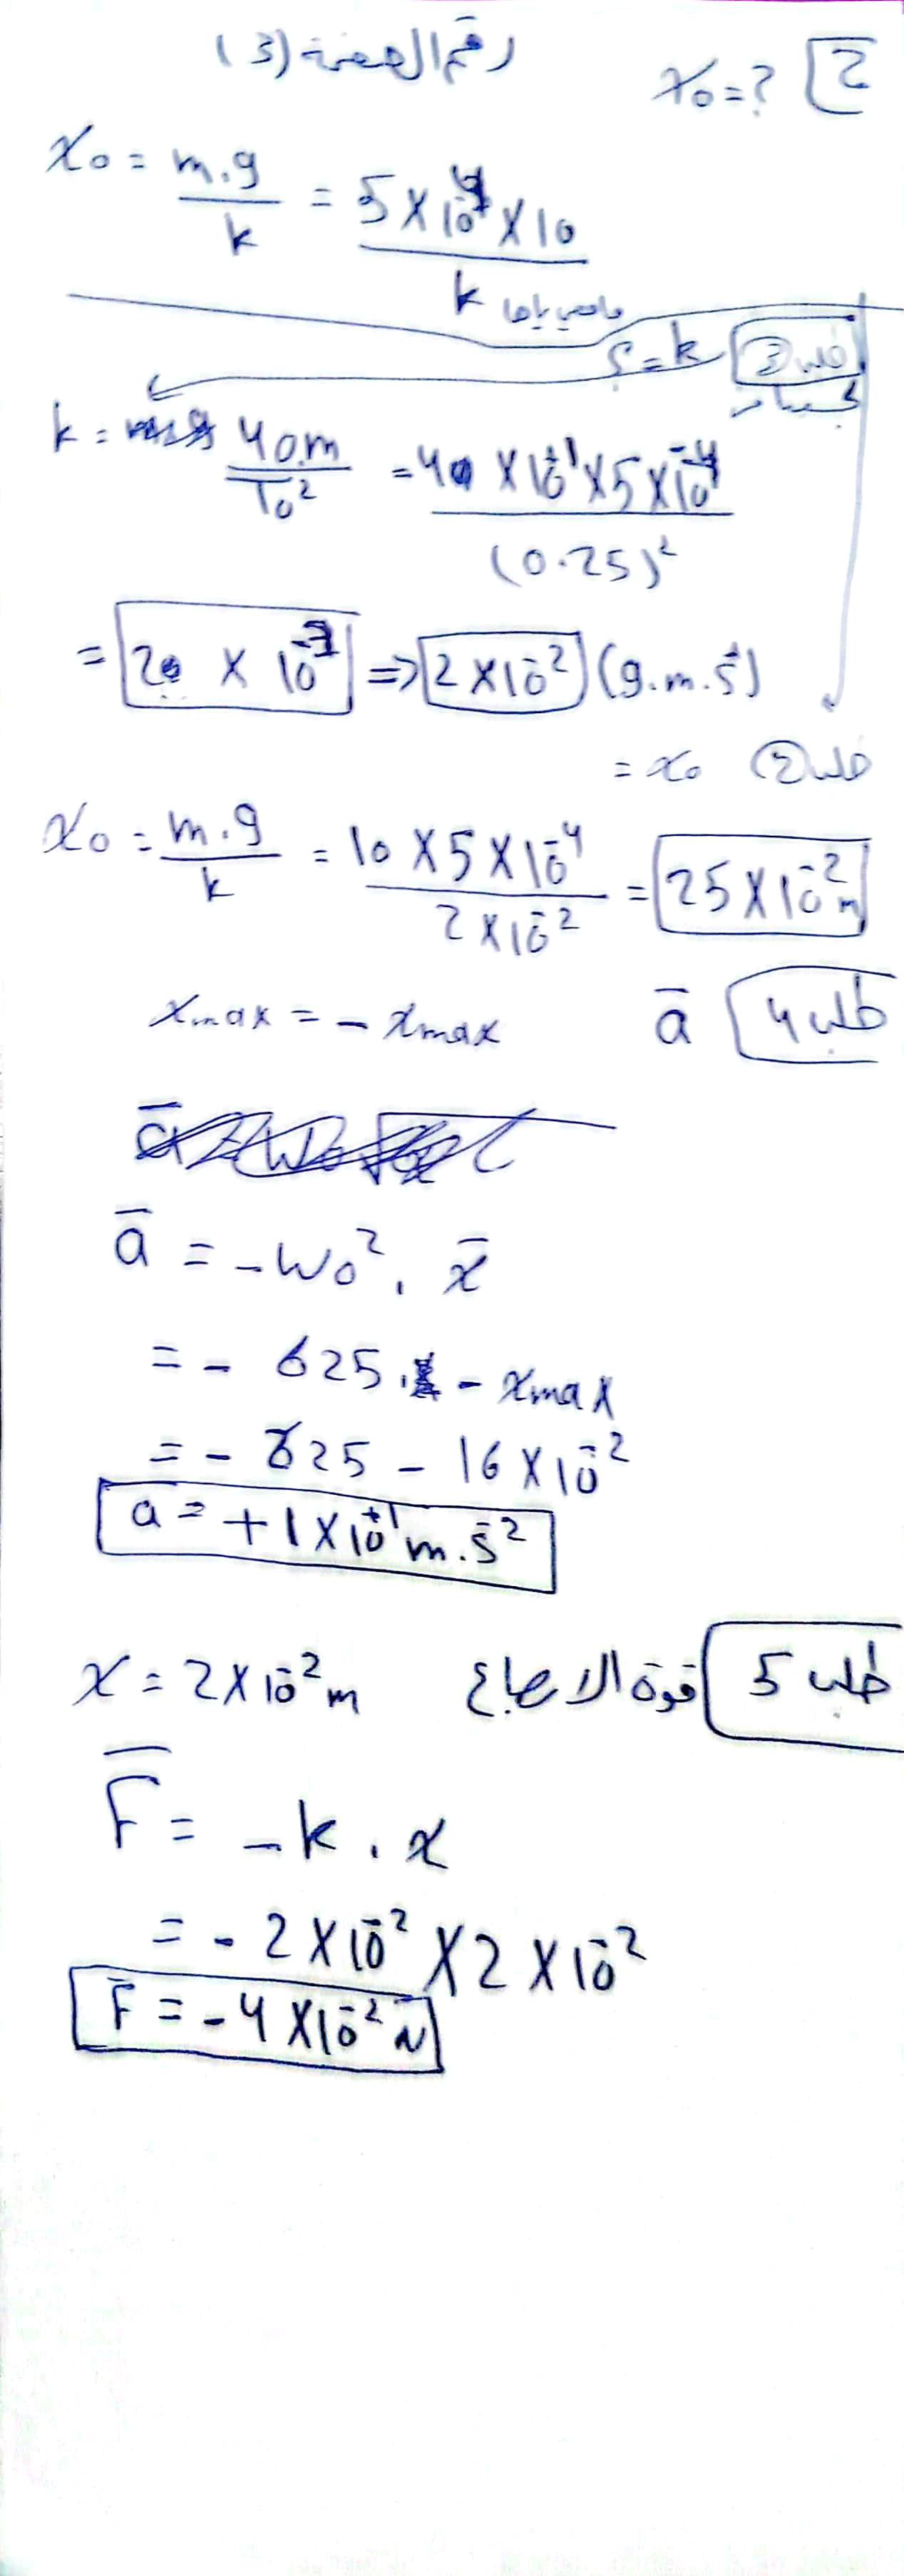 رقم الصفحة (3)
x₀ = ? 2
x₀ = m.g / k = 5 × 10⁻⁴ × 10 / k
طلب 3 k = ؟
k = 40.m / T₀² = 4 × 10⁺¹ × 5 × 10⁻⁴ / (0.25)²
= 20 × 10⁻³ ⇒ 2 × 10⁻² (g.m.s⁻²)
طلب 2 x₀ =
x₀ = m.g / k = 10 × 5 × 10⁻⁴ / 2 × 10⁻² = 25 × 10⁻² m
طلب 4 a̅ xmax = - xmax
a̅ = - W₀² . x̅
= - 625 . - xmax
= - 625 - 16 × 10⁻²
a = + 1 × 10⁺¹ m.s⁻²
طلب 5 قوة الارجاع x = 2 × 10⁻² m
F̅ = - k . x
= - 2 × 10⁻² × 2 × 10⁻²
F = - 4 × 10⁻² N